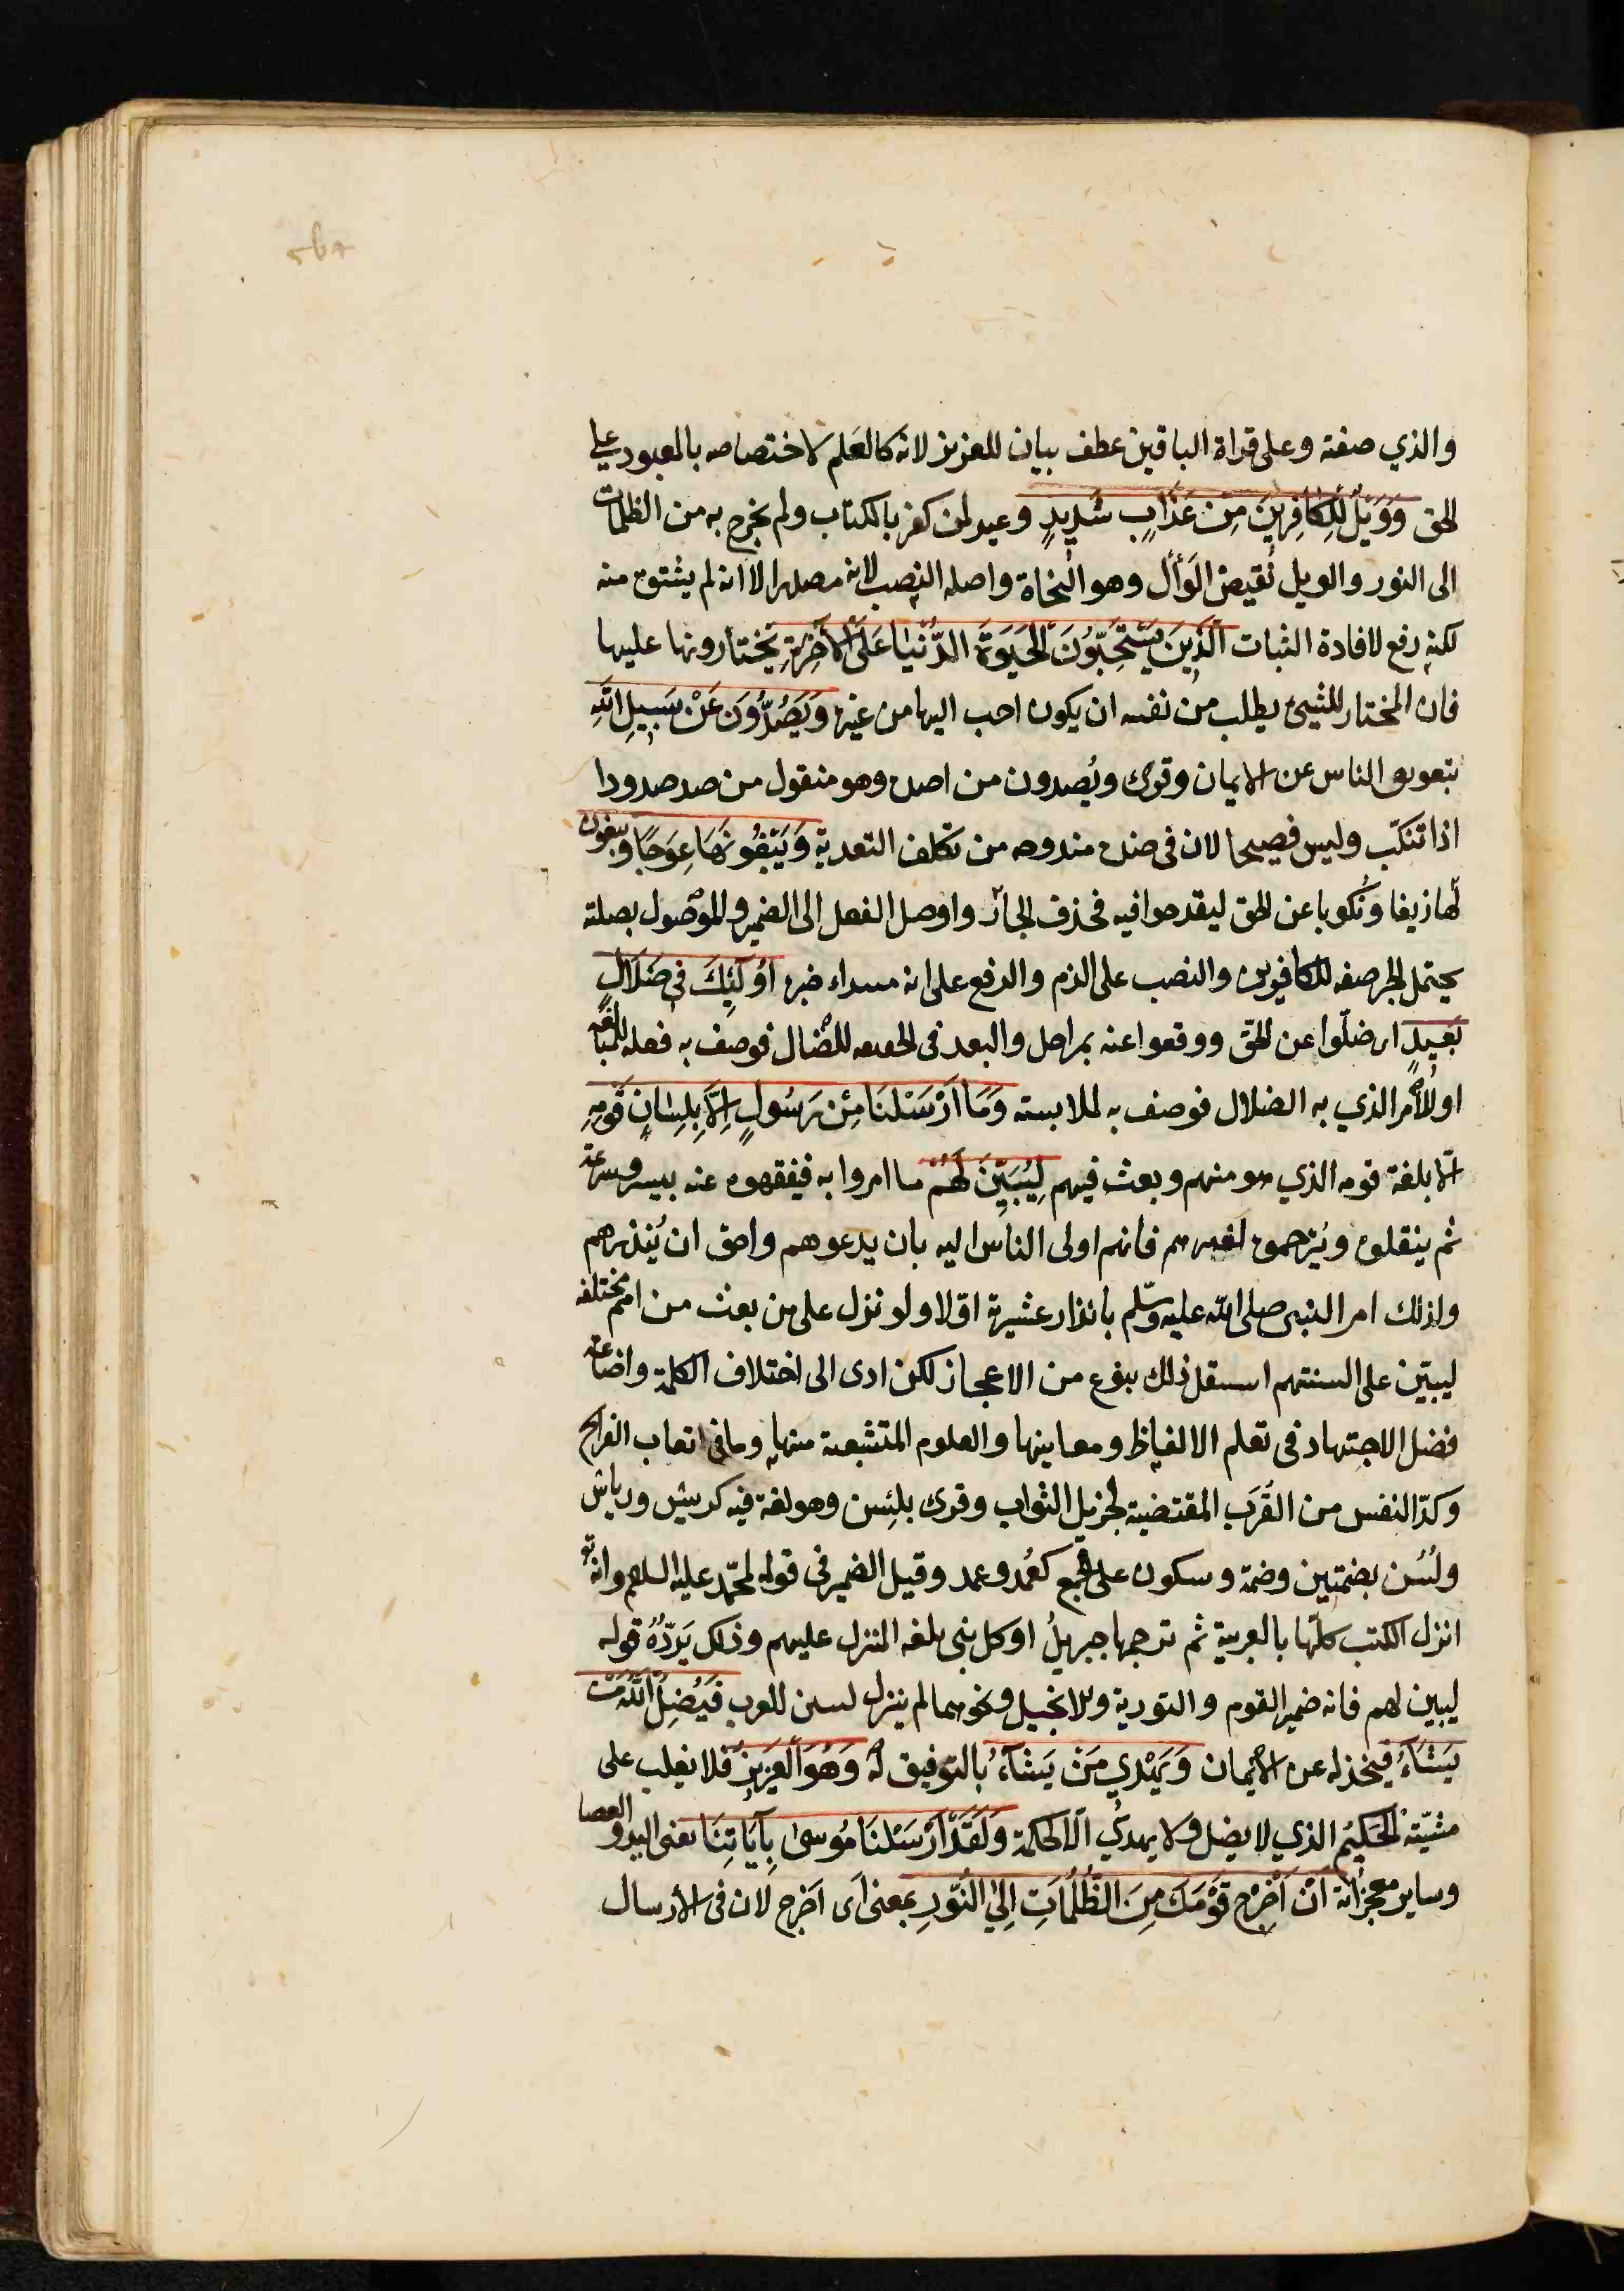 والذي صفته وعلى قراة الباقين عطف بيان للعزيز لانه كالعلم لاختصاصه بالمعبود على
الحق وَوَيْلٌ لِلْكَافِرِينَ مِنْ عَذَابٍ شَدِيدٍ وعيد لمن كفر بالكتاب ولم يخرج به من الظلمات
الى النور والويل نقيض الوَأْل وهو النجاة واصله النصب لانه مصدر الا انه لم يشتق منه
لكنه رفع لافادة الثبات اَلَّذِينَ يَسْتَحِبُّونَ الْحَيَوةَ الدُّنْيَا عَلَى الْآخِرَةِ يختارونها عليها
فان المختار للشيئ يطلب من نفسه ان يكون احب اليها من غيره وَيَصُدُّونَ عَنْ سَبِيلِ اللهِ
بتعويق الناس عن الايمان وقرئ ويُصدون من اصده وهو منقول من صد صدودا
اذا تنكّب وليس فصيحا لان في صده مندوحه من تكلف التعدية وَيَبْغُونَهَا عِوَجًا ويبغون
لها زيغا ونُكوبا عن الحق ليقدحوا فيه فحذف الجار واوصل الفعل الى الضمير والموصول بصلته
يحتمل الجر صفه للكافرين والنصب على الذم والرفع على انه مبتداء خبره اُولَئِكَ فِي ضَلَالٍ
بَعِيدٍ اى ضلّوا عن الحقّ ووقعوا عنه بمراحل والبعد في الحقيقه للضّال فوصف به فعله للمبالغه
او للامر الذي به الضلال فوصف به لملابسته وَمَا اَرْسَلْنَا مِنْ رَسُولٍ اِلَّا بِلِسَانِ قَوْمِهِ
الا بلغة قومه الذي هو منهم وبعث فيهم لِيُبَيِّنَ لَهُمْ ما امروا به فيفقهوه عنه بيسر وسرعة
ثم ينقلوه ويُترجموه لغيرهم فانهم اولى الناس اليه بان يدعوهم واحق ان يُنذرهم
ولذلك امر النبى صلى الله عليه وسلّم بانذار عشيرته اوّلا ولو نزل على من بعث من امم مختلفه
ليبيّن على السنتهم استقل ذلك بنوع من الاعجاز لكن ادى الى اختلاف الكلمة واضاعة
فضل الاجتهاد في تعلم الالفاظ ومعاينها والعلوم المتشعبة منها وما في اتعاب القرائح
وكدّ النفس من القُرَب المقتضية لجزيل الثواب وقرئ بلِسْن وهو لغة فيه كريش ورياش
ولُسُن بضمتين وضمة وسكون على الجمع كعُمُد وعمد وقيل الضمير في قومه لمحمّد عليه السلام وانه تع
انزل الكتب كلّها بالعربية ثم ترجمها جبريلُ او كل نبى بلغه المنزل عليهم وذلك يَردُّهُ قوله
ليبين لهم فانه ضمير القوم والتورية والانجيل ونحوهما لم ينزل لسن للعرب فَيُضِلُّ اللهُ مَنْ
يَشَاءُ فيخذله عن الايمان وَيَهْدِي مَنْ يَشَاءُ بالتوفيق له وَهُوَ الْعَزِيزُ فلا يغلب على
مشيّته الْحَكِيمُ الذي لا يضل ولا يهدي الا لحكمة وَلَقَدْ اَرْسَلْنَا مُوسى بِآيَاتِنَا يعنى اليد والعصا
وساير معجزاته اَنْ اَخْرِجْ قَوْمَكَ مِنَ الظُّلُمَاتِ اِلَى النُّورِ بمعنى اَى اَخرج لان في الارسال